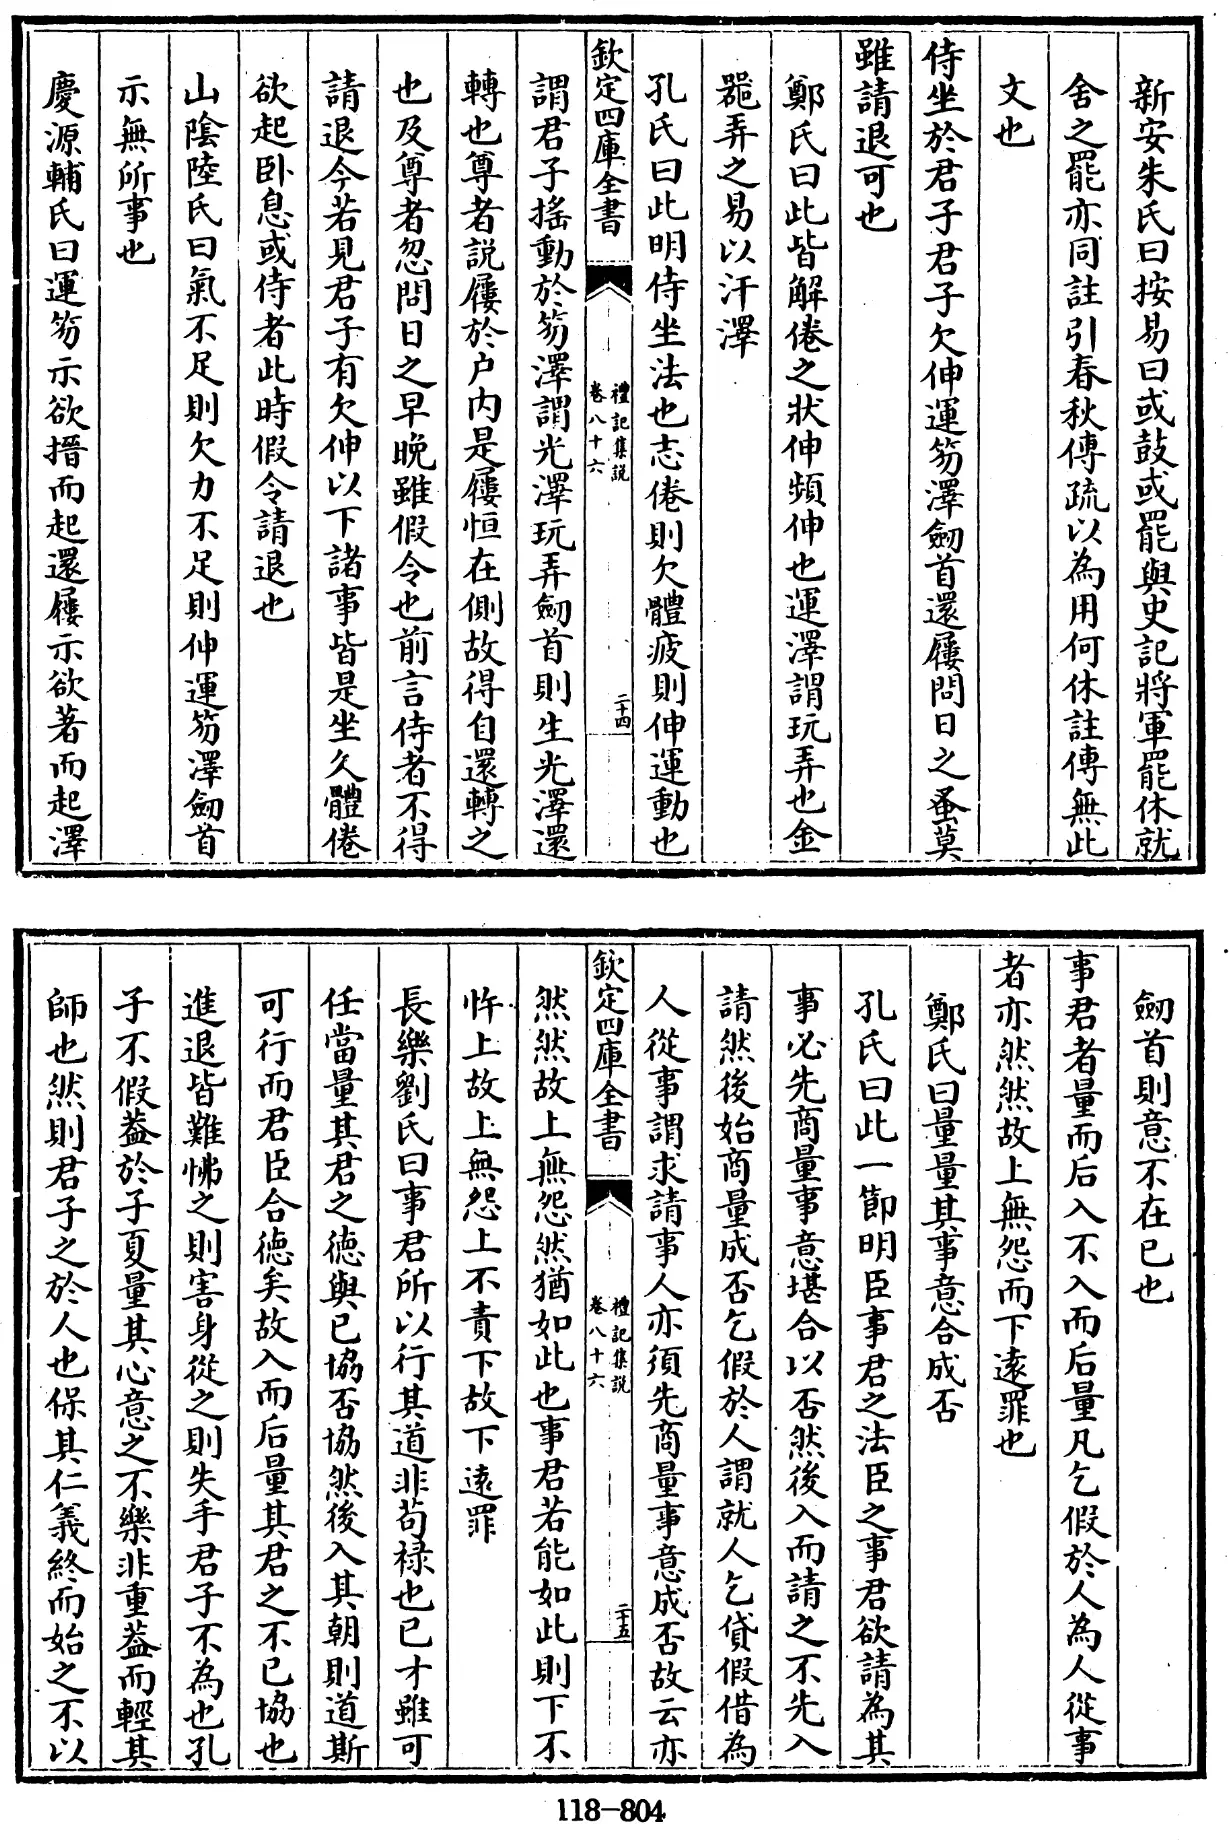 新安朱氏曰按易曰或鼓或罷與史記將軍罷休就
舍之罷亦同註引春秋傳疏以為用何休註傳無此
文也
侍坐於君子君子欠伸運笏澤劒首還屨問日之蚤莫
雖請退可也
鄭氏曰此皆解倦之狀伸頻伸也運澤謂玩弄也金
器弄之易以汗澤
孔氏曰此明侍坐法也志倦則欠體疲則伸運動也
欽定四庫全書
禮記集説
卷八十六
二十四
謂君子搖動於笏澤謂光澤玩弄劒首則生光澤還
轉也尊者説屨於户内是屨恒在側故得自還轉之
也及尊者忽問日之早晚雖假令也前言侍者不得
請退今若見君子有欠伸以下諸事皆是坐久體倦
欲起卧息或侍者此時假令請退也
山隂陸氏曰氣不足則欠力不足則伸運笏澤劒首
示無所事也
慶源輔氏曰運笏示欲搢而起還屨示欲著而起澤
劒首則意不在已也
事君者量而后入不入而后量凡乞假於人為人從事
者亦然然故上無怨而下逺罪也
鄭氏曰量量其事意合成否
孔氏曰此一節明臣事君之法臣之事君欲請為其
事必先商量事意堪合以否然後入而請之不先入
請然後始商量成否乞假於人謂就人乞貸假借為
人從事謂求請事人亦須先商量事意成否故云亦
欽定四庫全書
禮記集説
卷八十六
二十五
然然故上無怨然猶如此也事君若能如此則下不
忤上故上無怨上不責下故下逺罪
長樂劉氏曰事君所以行其道非苟禄也已才雖可
任當量其君之德與已協否協然後入其朝則道斯
可行而君臣合德矣故入而后量其君之不已協也
進退皆難怫之則害身從之則失手君子不為也孔
子不假葢於子夏量其心意之不樂非重葢而輕其
師也然則君子之於人也保其仁義終而始之不以
118-804